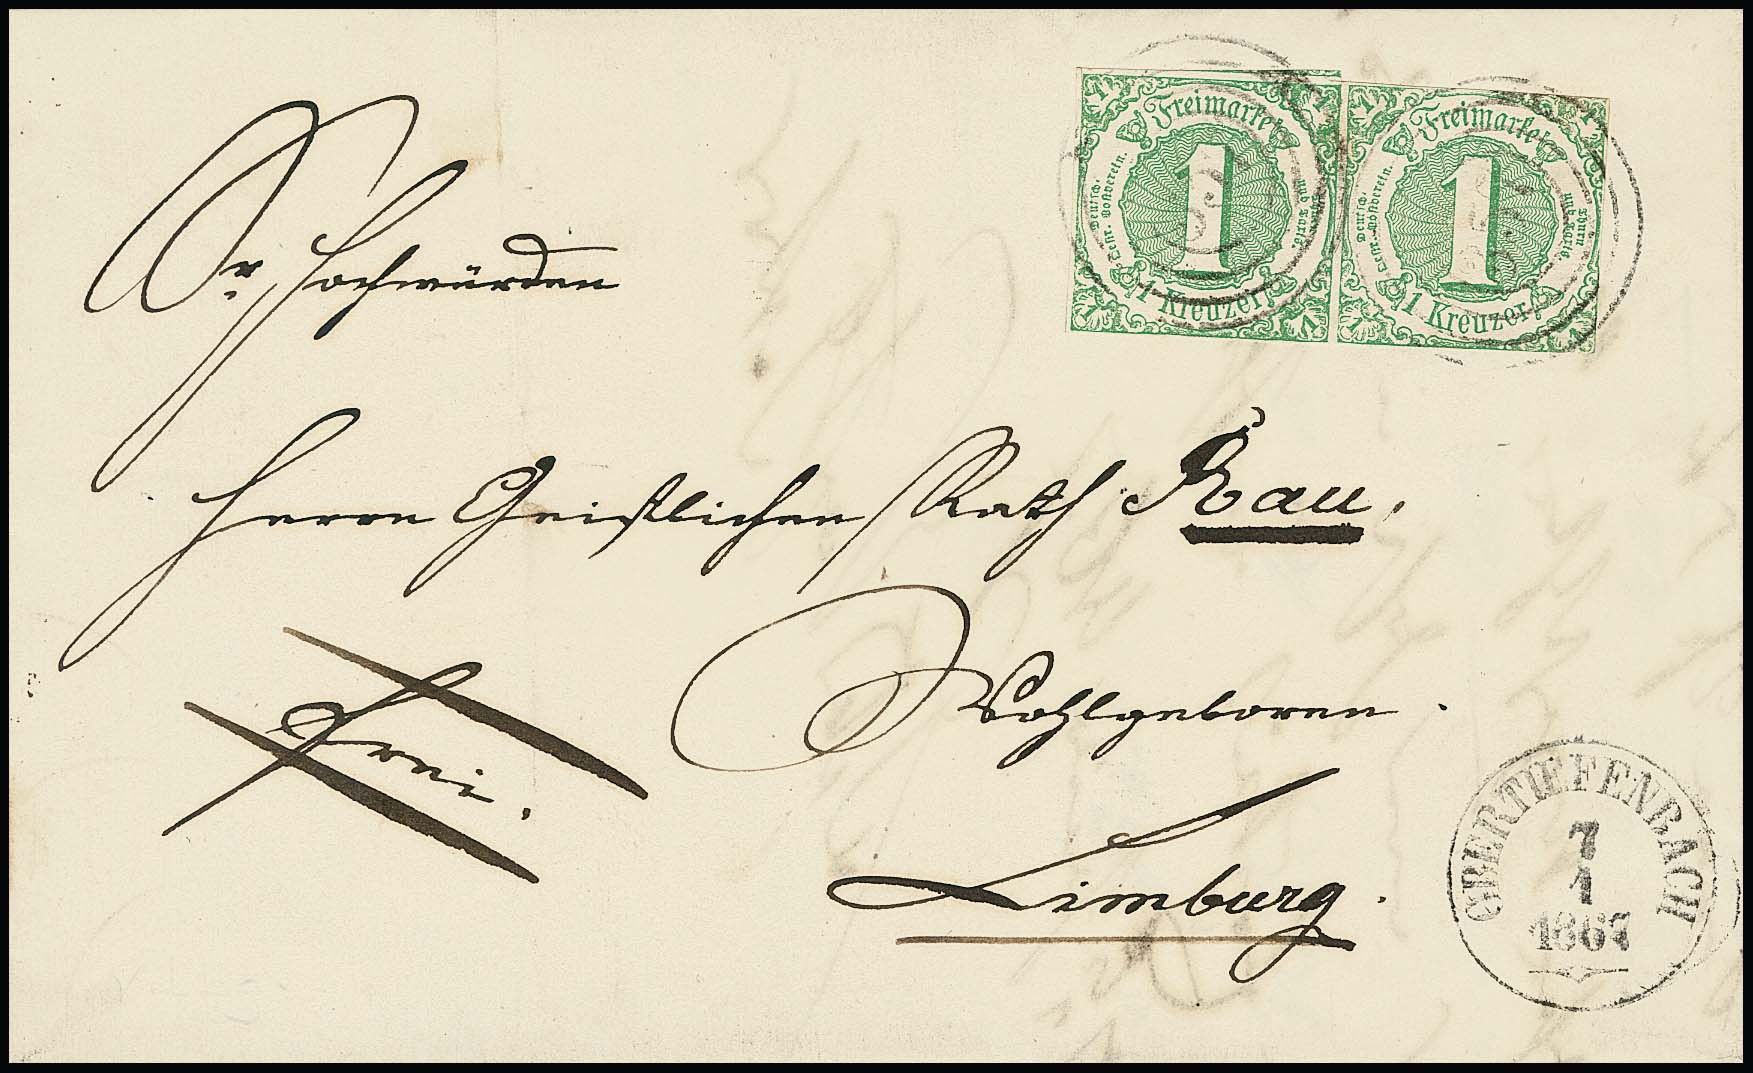 Freimarke
Deutsch-
Oestr. Postverein.
Thurn
und Taxis.
1
1 Kreuzer.
Freimarke
Deutsch-
Oestr. Postverein.
Thurn
und Taxis.
1
1 Kreuzer.
Sr. Hochwürden
Herrn Geistlichen Rath Rau,
Wohlgeboren.
Frei.
Limburg.
OBERTIEFENBACH
7
1
1867